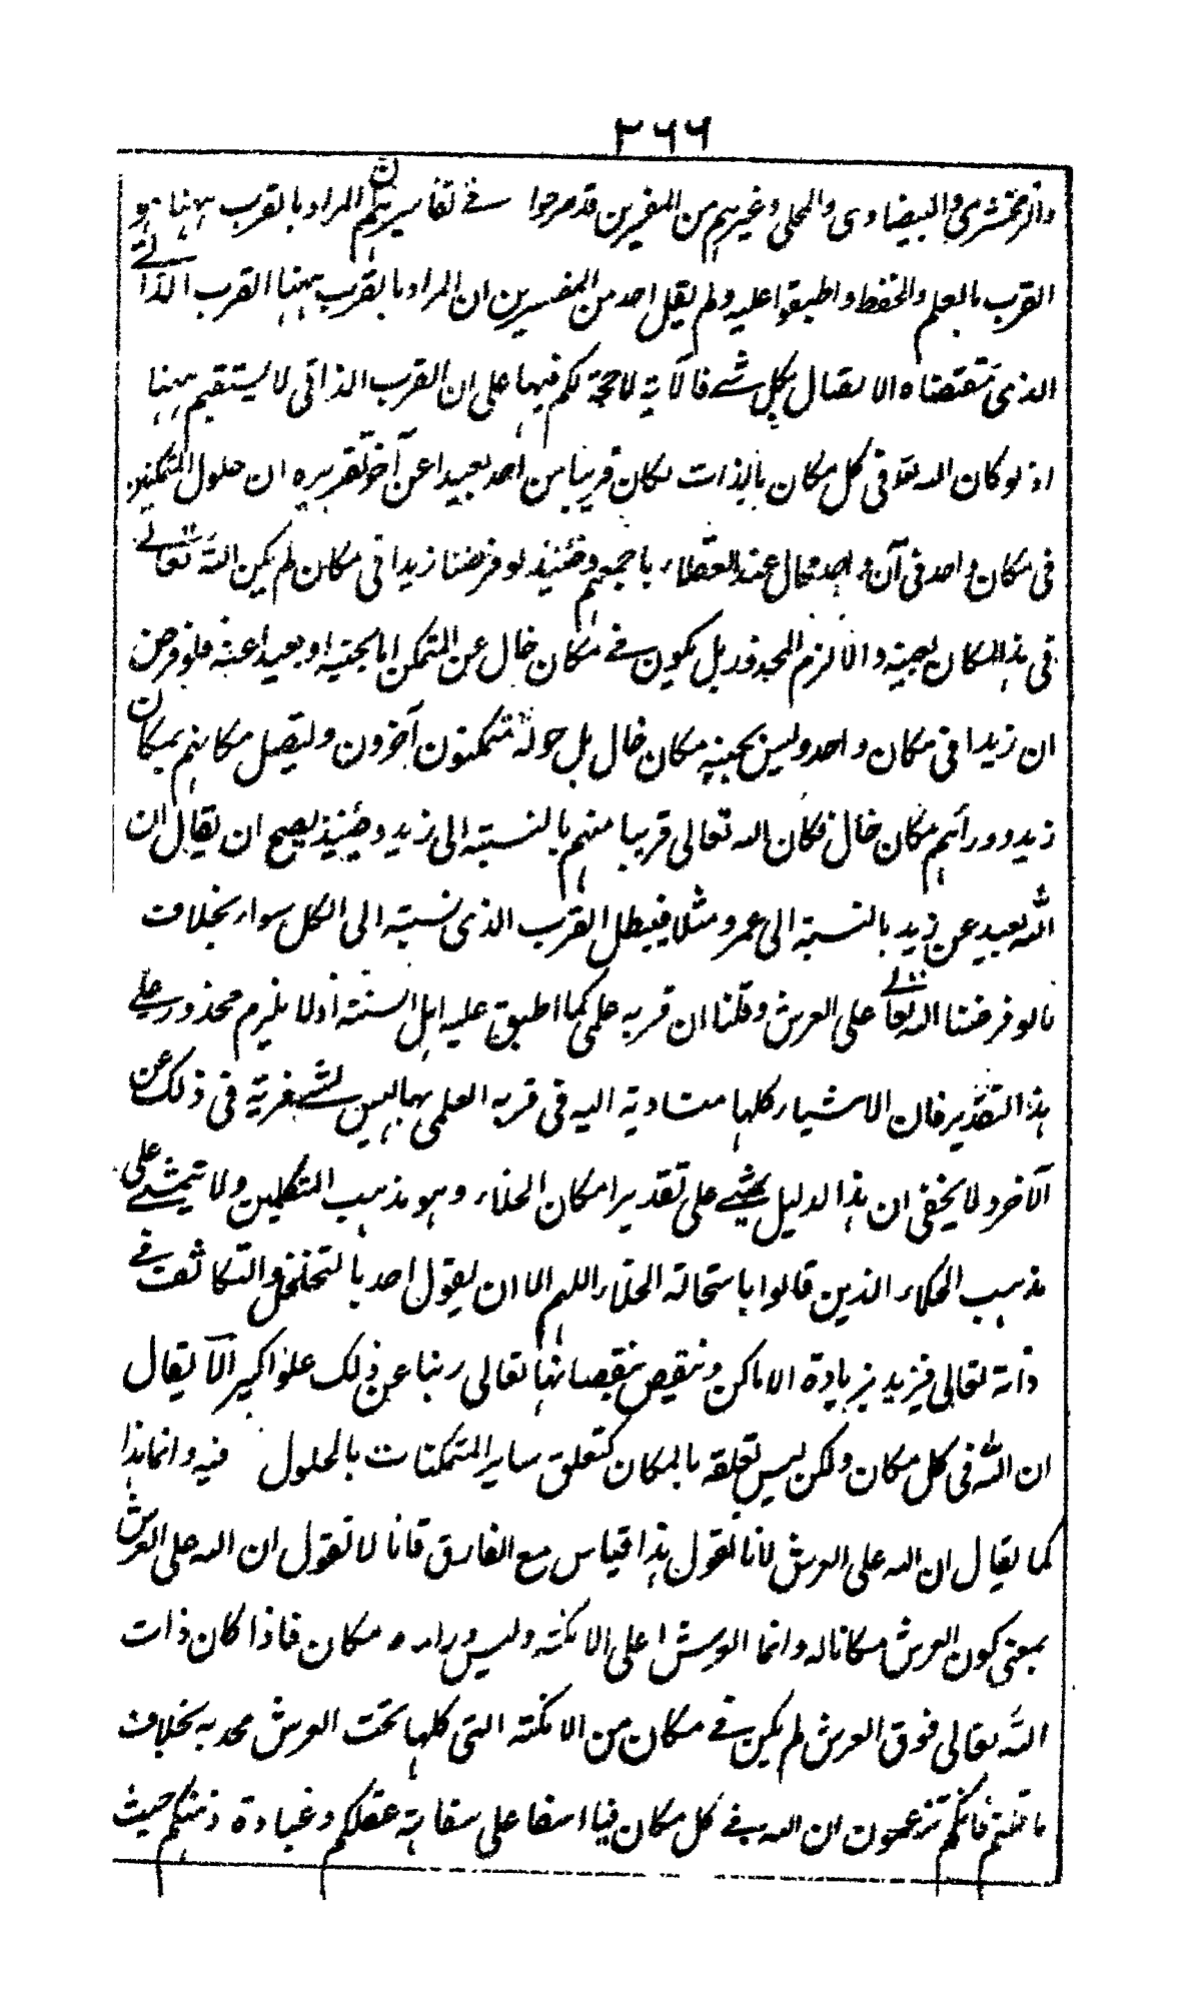 ٢٦٦
والزمخشري والبيضاوى والمحلى وغيرهم من المفسرين قد صرحوا في تفاسيرهم ان المراد بالقرب ههنا هو
القرب بالعلم والحفظ واطبقوا عليه ولم يقل احد من المفسرين ان المراد بالقرب ههنا القرب الذاتي
الذى مقتضاه الاتصال بكل شے فالآية لا حجة لكم فيها على ان القرب الذاتى لا يستقيم ههنا
اذ لو كان الله تعا فى كل مكان بالذات لكان قريبا من احد بعيدا عن آخر تقريره ان حلول المتمكنين
فى مكان واحد فى آن واحد محال عند العقلاء باجمعهم وحينئذ لو فرضنا زيدا فى مكان لم يكن الله تعالى
فى هذا المكان بعينه والا لزم المحذور بل يكون في مكان خال عن المتمكن اما بجنبه او بعيدا عنه فلو فرض
ان زيدا فى مكان واحد وليس بجنبه مكان خال بل حوله متمكنون آخرون ويتصل مكانهم بمكان
زيد وورائهم مكان خال فكان الله تعالى قريبا منهم بالنسبة الى زيد وحينئذ يصح ان يقال ان
الله بعيد عن زيد بالنسبة الى عمرو مثلا فيبطل القرب الذى نسبته الى الكل سواء بخلاف
ما لو فرضنا الله تعالى على العرش وقلنا ان قربه علمى كما اطبق عليه اهل السنة اذ لا يلزم محذور على
هذا التقدير فان الاشياء كلها متساوية اليه فى قربه العلمى بها ليس لشے مزية فى ذلك عن
الآخر ولا يخفى ان هذا الدليل يمشے على تقدير امكان الخلاء وهو مذهب المتكلمين ولا يتمشے على
مذهب الحكماء الذين قالوا باستحالة الخلاء اللهم الا ان يقول احد بالتخلخل والتكاثف في
ذاته تعالى فيزيد بزيادة الاماكن وينقص بنقصانها تعالى ربنا عن ذلك علوا كبيرا لا يقال
ان الله فى كل مكان ولكن ليس تعلقه بالمكان كتعلق ساير المتمكنات بالحلول فيه وانما هذا
كما يقال ان الله على العرش لانا نقول هذا قياس مع الفارق فانا لا نقول ان الله على العرش
بمعنى كون العرش مكانا له وانما العرش اعلى الامكنة وليس وراءه مكان فاذا كان ذات
الله تعالى فوق العرش لم يكن في مكان من الامكنة التى كلها تحت العرش محدبه بخلاف
ما قلتم فانكم تزعمون ان الله في كل مكان فيا اسفا على سفاهة عقلكم وغباوة ذهنكم حيث